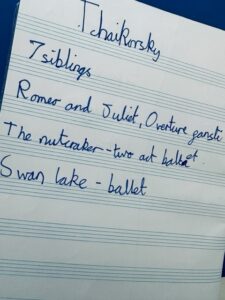 Tchaikovsky
7 siblings
Romeo and Juliet, Overture
The nutcracker - two act ballet
Swan lake - ballet